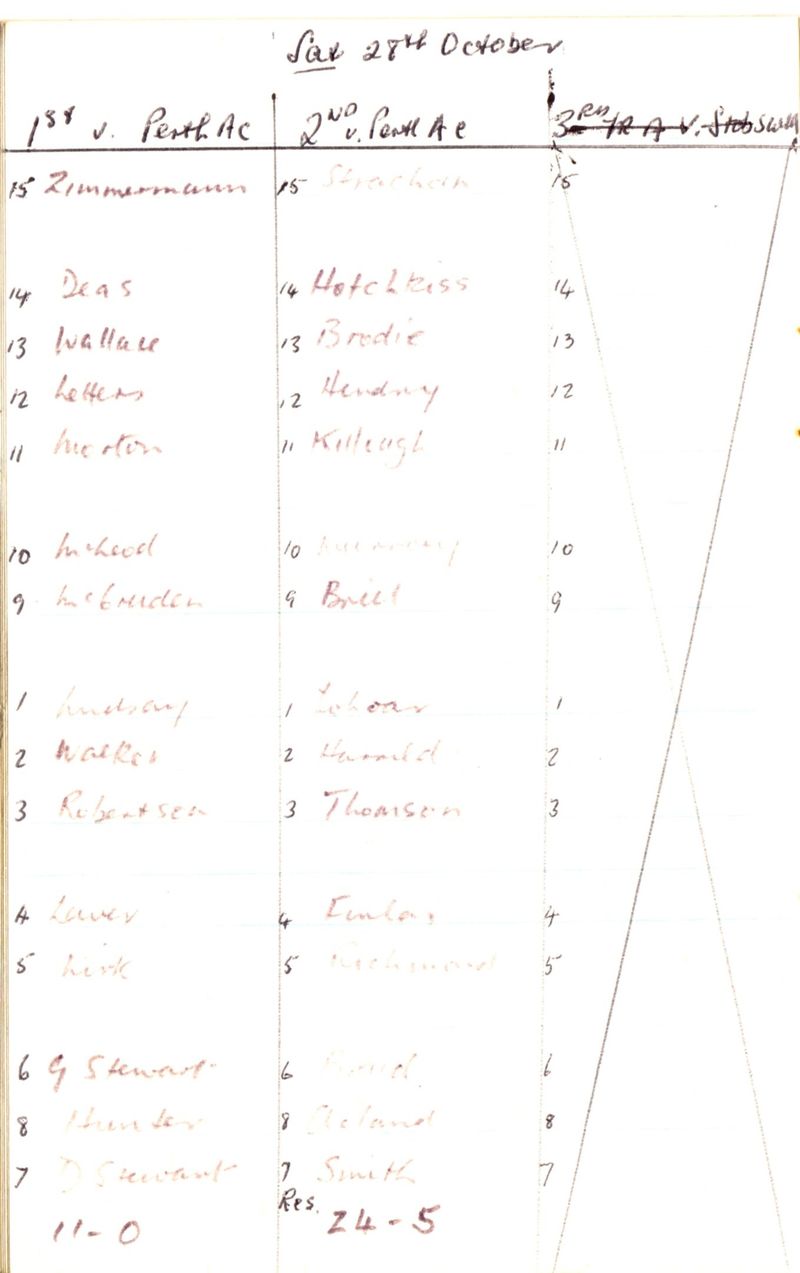 Sat 28th October
1st v. Perth Ac 2ND v. Perth Ac 3RD v.
15 Zimmermann 15 Strachan 15
14 Deas 14 Hotchkiss 14
13 Wallace 13 Brodie 13
12 Letters 12 Hendry 12
11 Morton 11 11
10 McLeod 10 10
9 9 9
1 Lindsay 1 1
2 Walker 2 2
3 Robertson 3 Thomson 3
4 4 4
5 Kirk 5 Richmond 5
6 G Stewart 6 6
8 Hunter 8 8
7 D Stewart 7 Smith 7
Res.
11-0 24-5